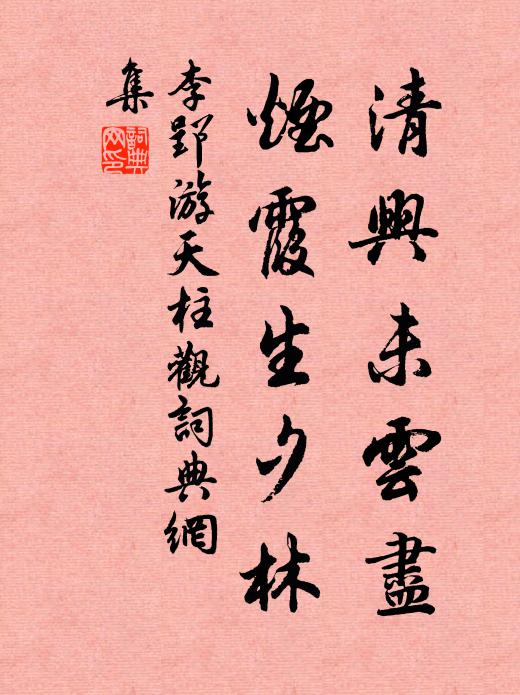 清興未雲盡
煙霞生夕林
李郢游天柱觀詞典網
集
詞典
网印